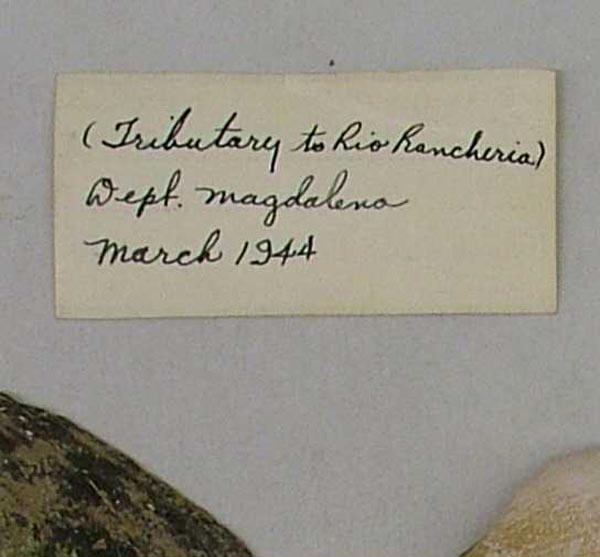 (Tributary to Rio Rancheria)
Dept. Magdalena
March 1944